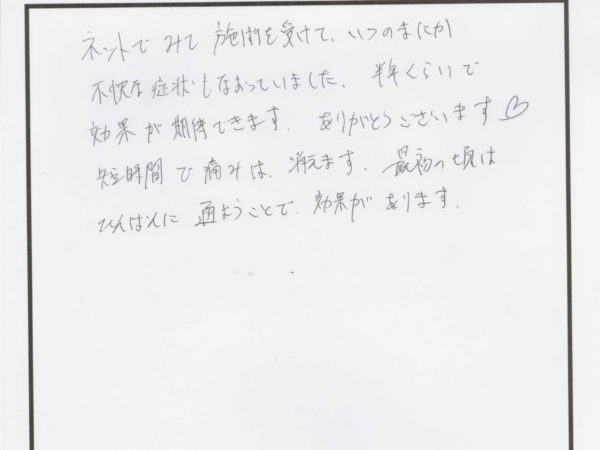 ネットでみて 施術を受けて、いつのまにか
不快な症状もなおっていました。半年くらいで
効果が期待できます。ありがとうございます♡
短時間で痛みは、消えます。最初の頃は
ひんぱんに通おうことで、効果があります。